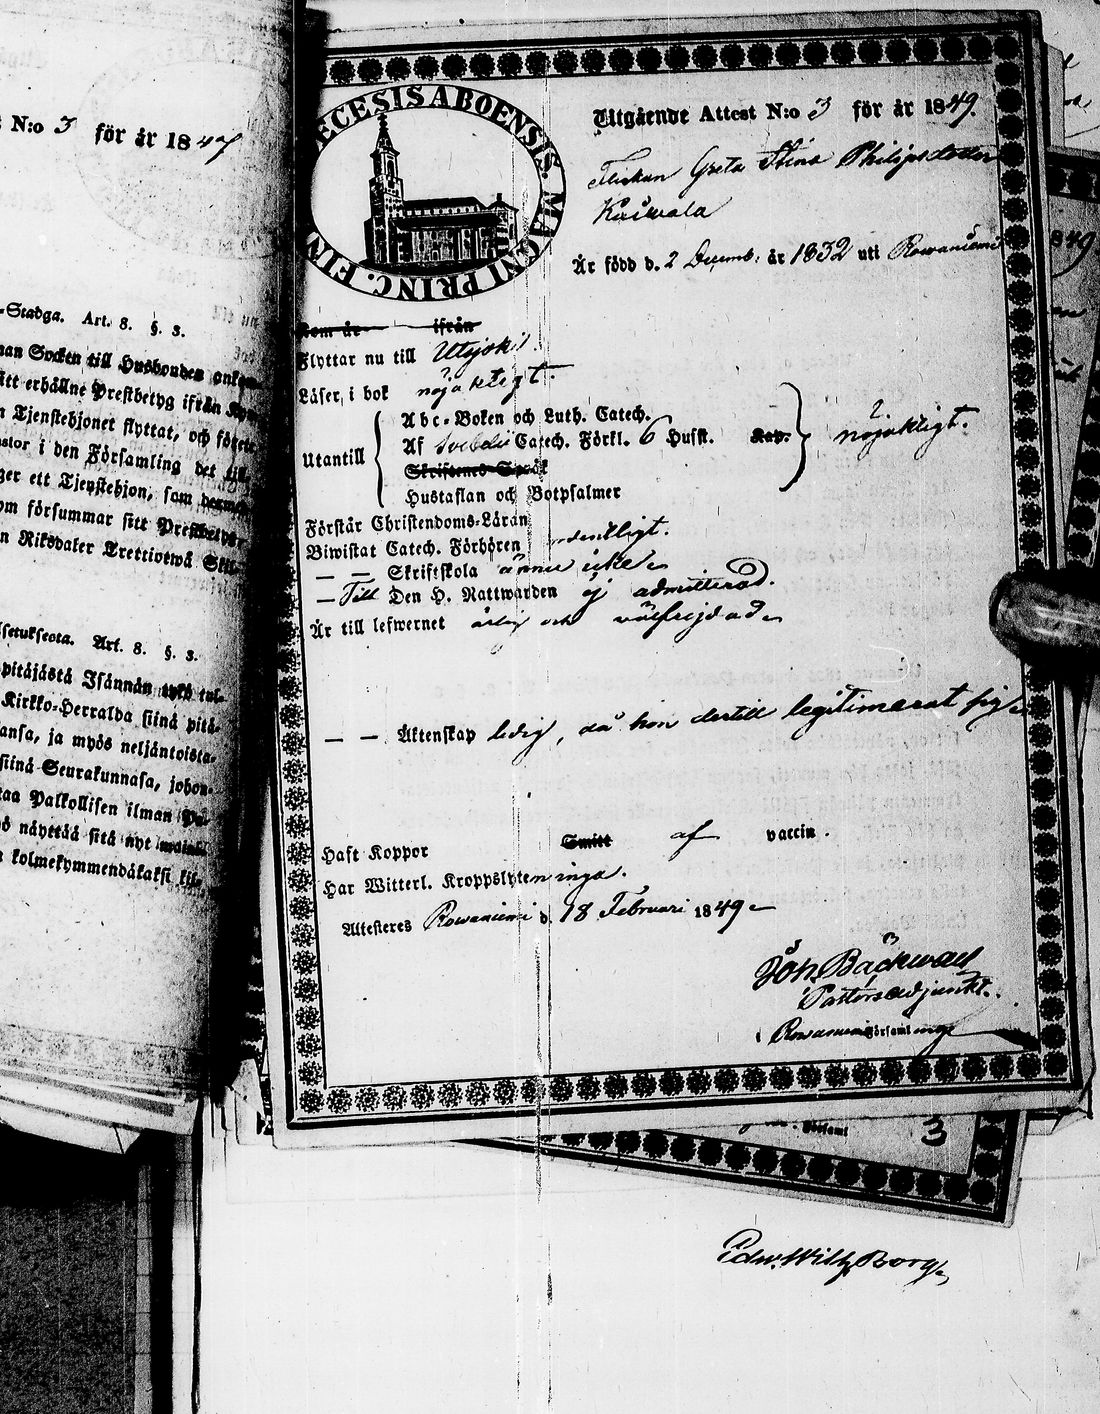 N:o 3 för år 1847
-Stadga. Art. 8. §. 3.
man Socken till Husbonden
sitt erhållne Prestbetyg ifrån
Tjenstehjonet flyttat, och
i den Församling det
ger ett Tjenstehjon, som
om försummar sitt Prestbetyg
Riksdaler Trettiotwå
Art. 8. §. 3.
pitäjästä Isännän tykö
Kirkko-Herralda siinä pitä-
ja myös neljäntoista-
siinä Seurakunnasa, johon-
Palkollisen ilman
näyttää sitä nyt
kolmekymmendäkaksi kil-
ECESIS ABOENSIS. MAGNI PRINC. FIN
Utgående Attest N:o 3 för år 1849.
Flickan Greta Stina Philipsdotter
Kaiwala
Är född d. 2 Decemb: år 1832 uti Rowaniemi
Kom år ifrån
Flyttar nu till Utsjoki.
Läser i bok nöjaktigt.
Utantill
Abc-Boken och Luth. Catech.
Af Svebelii Catech. Förkl. 6 Hufst. Kap.
nöjaktigt.
Skriftenes Språk
Hustaflan och Botpsalmer
Förstår Christendoms-Läran
Biwistat Catech. Förhören ordentligt.
— — Skriftskola ännu icke
— Till Den H. Nattwarden ej admitterad.
Är till lefwernet ärlig och välfrejdad
— — Äktenskap ledig, då hon dertill legitimerat sig
Haft Koppor Smitt af vaccin.
Har Witterl. Kroppslyten inga.
Attesteres Rowaniemi d. 18 Februari 1849
Joh. Bäckwall
Pastorsadjunkt.
Rowaniemi församlings
849
Församl
3
Edw. Wilh. Borg